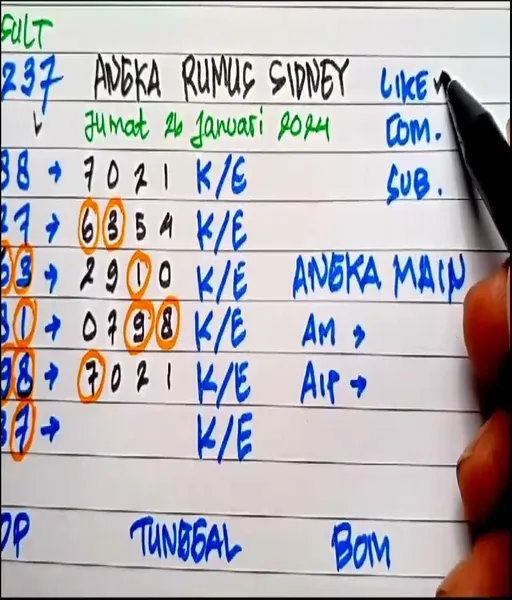 SULT
237 ANGKA RUMUS SIDNEY LIKE
Jumat 26 Januari 2024 COM.
38 → 7021 K/E SUB.
27 → 6354 K/E
63 → 2910 K/E ANGKA MAIN
31 → 0798 K/E AM →
98 → 7021 K/E AIP →
37 → K/E
OP TUNGGAL BOM